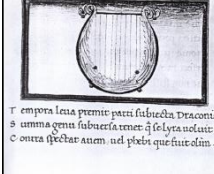 T empora leua premit parti subiecta Draconi
S umma genu subuersa tenet q̄ se lyra uoluit
C ontra spectat auem uel phebi que fuit olim